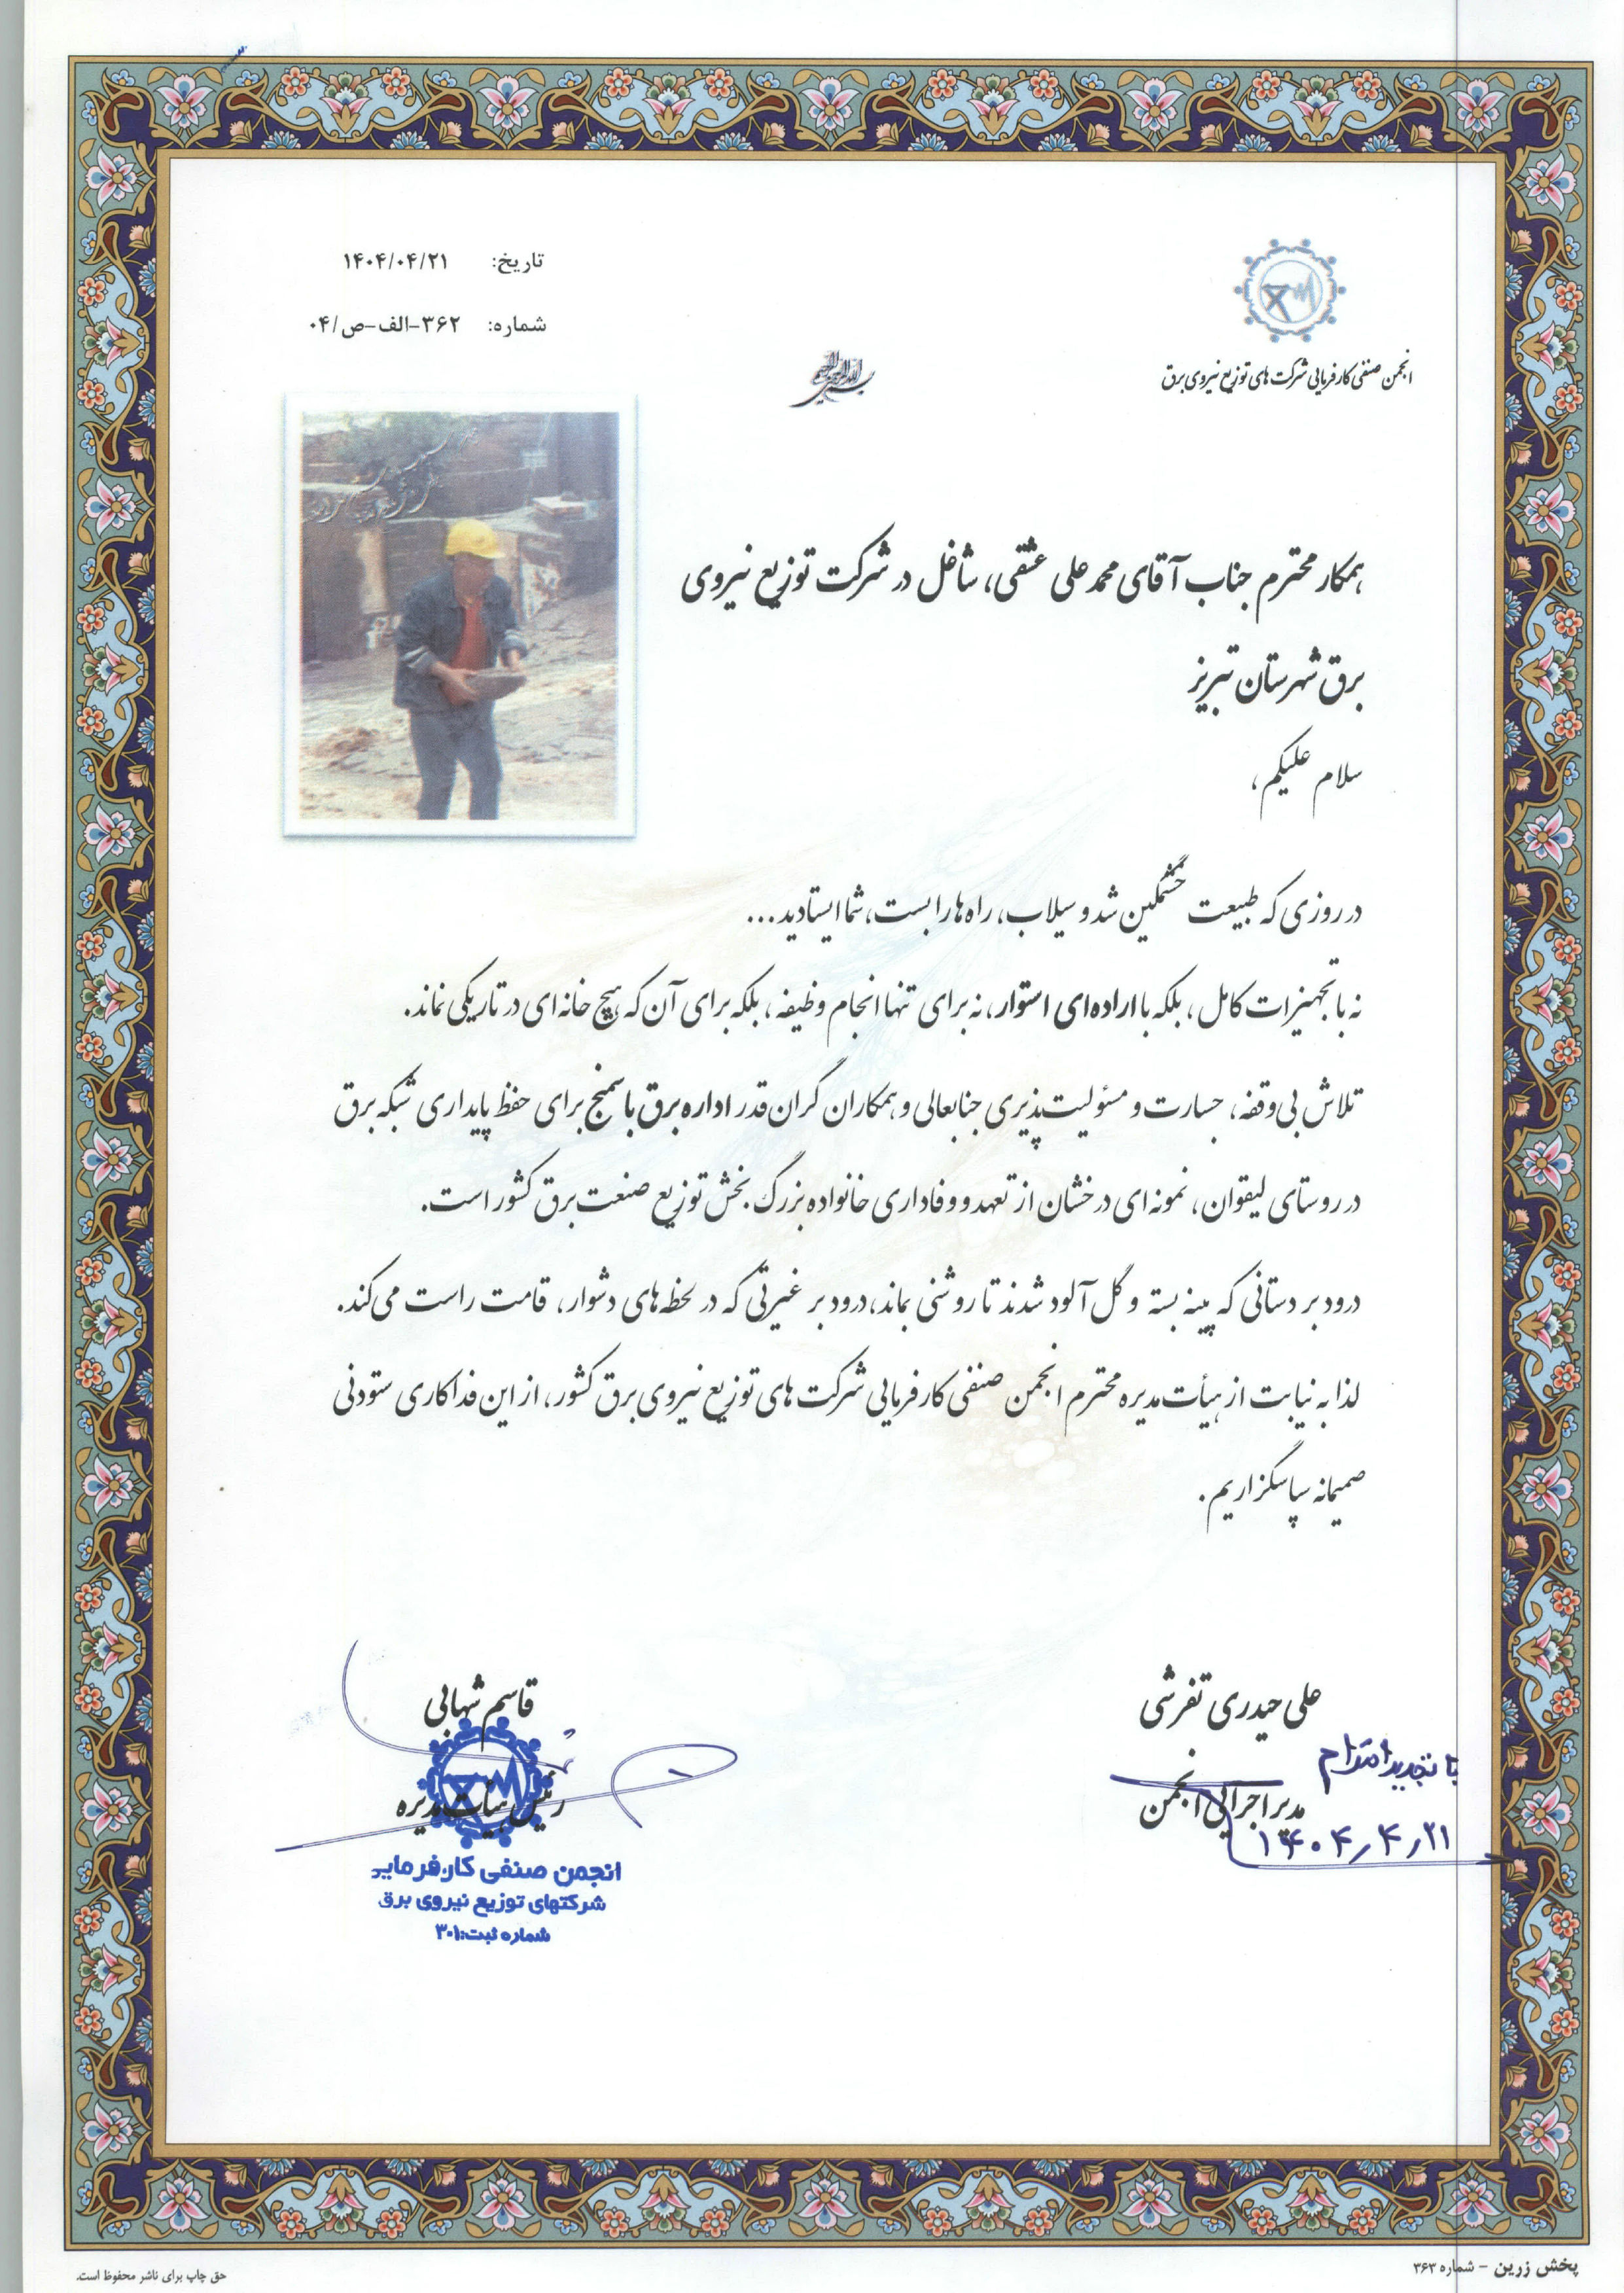 تاریخ: ۱۴۰۴/۰۴/۲۱
شماره: ۳۶۲-الف-ص/۰۴
انجمن صنفی کارفرمایی شرکت های توزیع نیروی برق
همکار محترم جناب آقای محمدعلی عشقی، شاغل در شرکت توزیع نیروی
برق شهرستان تبریز
سلام علیکم،
در روزی که طبیعت خشمگین شد و سیلاب، راه ها را بست، شما ایستادید...
نه با تجهیزات کامل، بلکه با اراده‌ای استوار، نه برای تنها انجام وظیفه، بلکه برای آن که هیچ خانه ای در تاریکی نماند.
تلاش بی‌وقفه، جسارت و مسئولیت‌پذیری جنابعالی و همکاران گران‌قدر اداره برق باسمنج برای حفظ پایداری شبکه برق
در روستای لیقوان، نمونه ای درخشان از تعهد و وفاداری خانواده بزرگ بخش توزیع صنعت برق کشور است.
درود بر دستانی که پینه بسته و گل آلود شدند تا روشنی بماند، درود بر غیرتی که در لحظه‌های دشوار، قامت راست می‌کند.
لذا به نیابت از هیأت مدیره محترم انجمن صنفی کارفرمایی شرکت های توزیع نیروی برق کشور، از این فداکاری ستودنی
صمیمانه سپاسگزاریم.
علی حیدری تفرشی
با تجدید احترام
مدیر اجرایی انجمن
۱۴۰۴/۴/۲۱
قاسم شهابی
رئیس هیأت مدیره
انجمن صنفی کارفرمایی
شرکتهای توزیع نیروی برق
شماره ثبت:۳۰۱
پخش زرین - شماره ۳۶۳
حق چاپ برای ناشر محفوظ است.